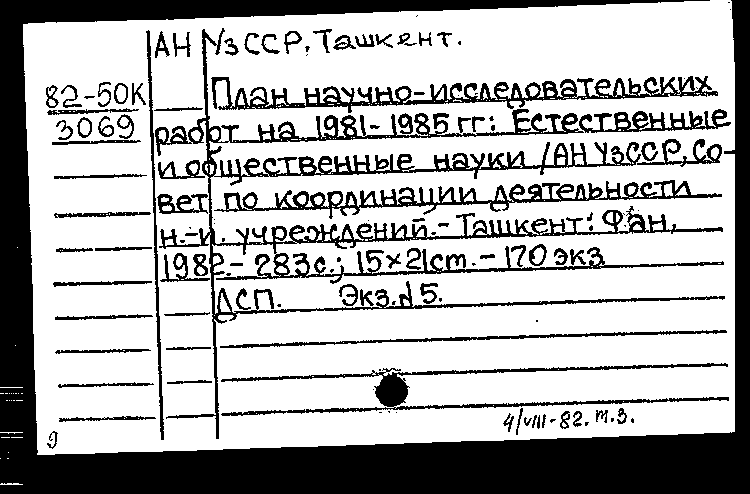 АН УзССР, Ташкент.
82-50К
3069
План научно-исследовательских
работ на 1981-1985 гг: Естественные
и общественные науки /АН УзССР, Со-
вет по координации деятельности
н.-и. учреждений.- Ташкент: Фан,
1982.- 283с.; 15×21см.- 170 экз
ДСП. Экз.№5.
4/VIII-82. т.з.